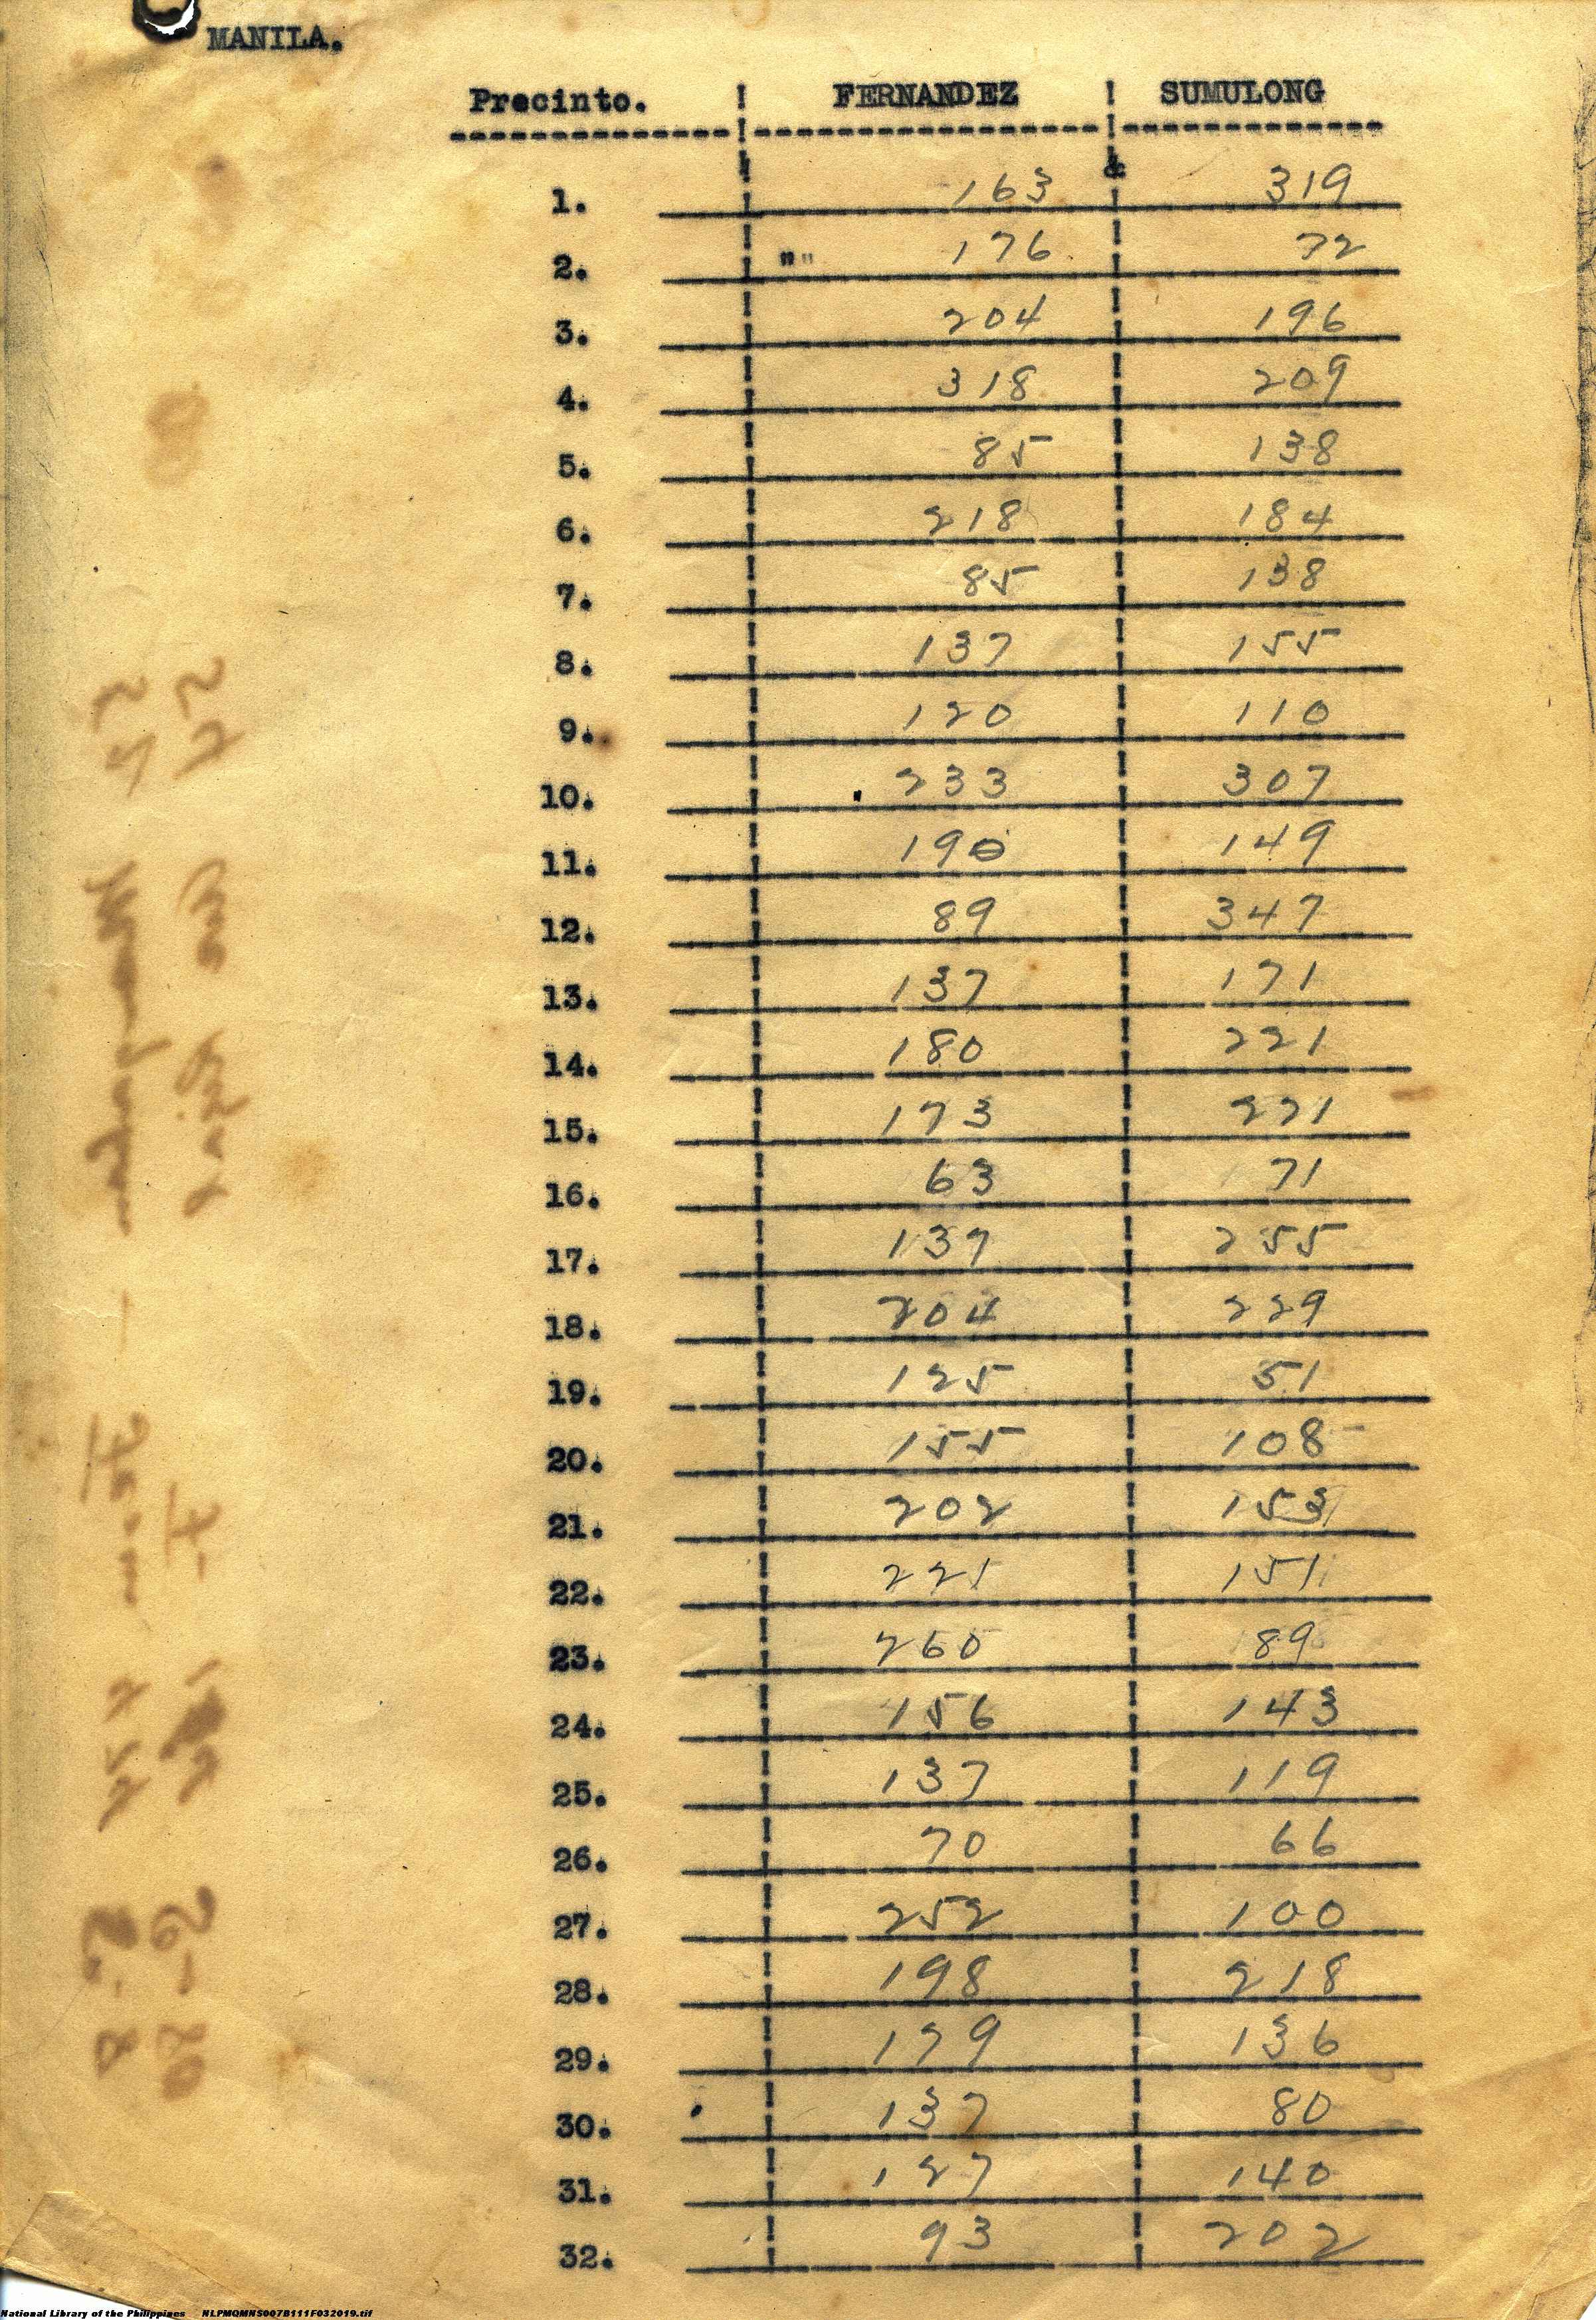 MANILA.
Precinto. ! FERNANDEZ ! SUMULONG
1. 163 319
2. "" 176 72
3. 204 196
4. 318 209
5. 85 138
6. 218 184
7. 85 138
8. 137 155
9. 120 110
10. 233 307
11. 190 149
12. 89 347
13. 137 171
14. 180 221
15. 173 221
16. 63 71
17. 137 255
18. 204 229
19. 125 51
20. 155 108
21. 202 153
22. 221 151
23. 260 89
24. 156 143
25. 137 119
26. 70 66
27. 252 100
28. 198 218
29. 179 136
30. 137 80
31. 127 140
32. 93 202
National Library of the Philippines NLPMQMNS007B111F032019.tif